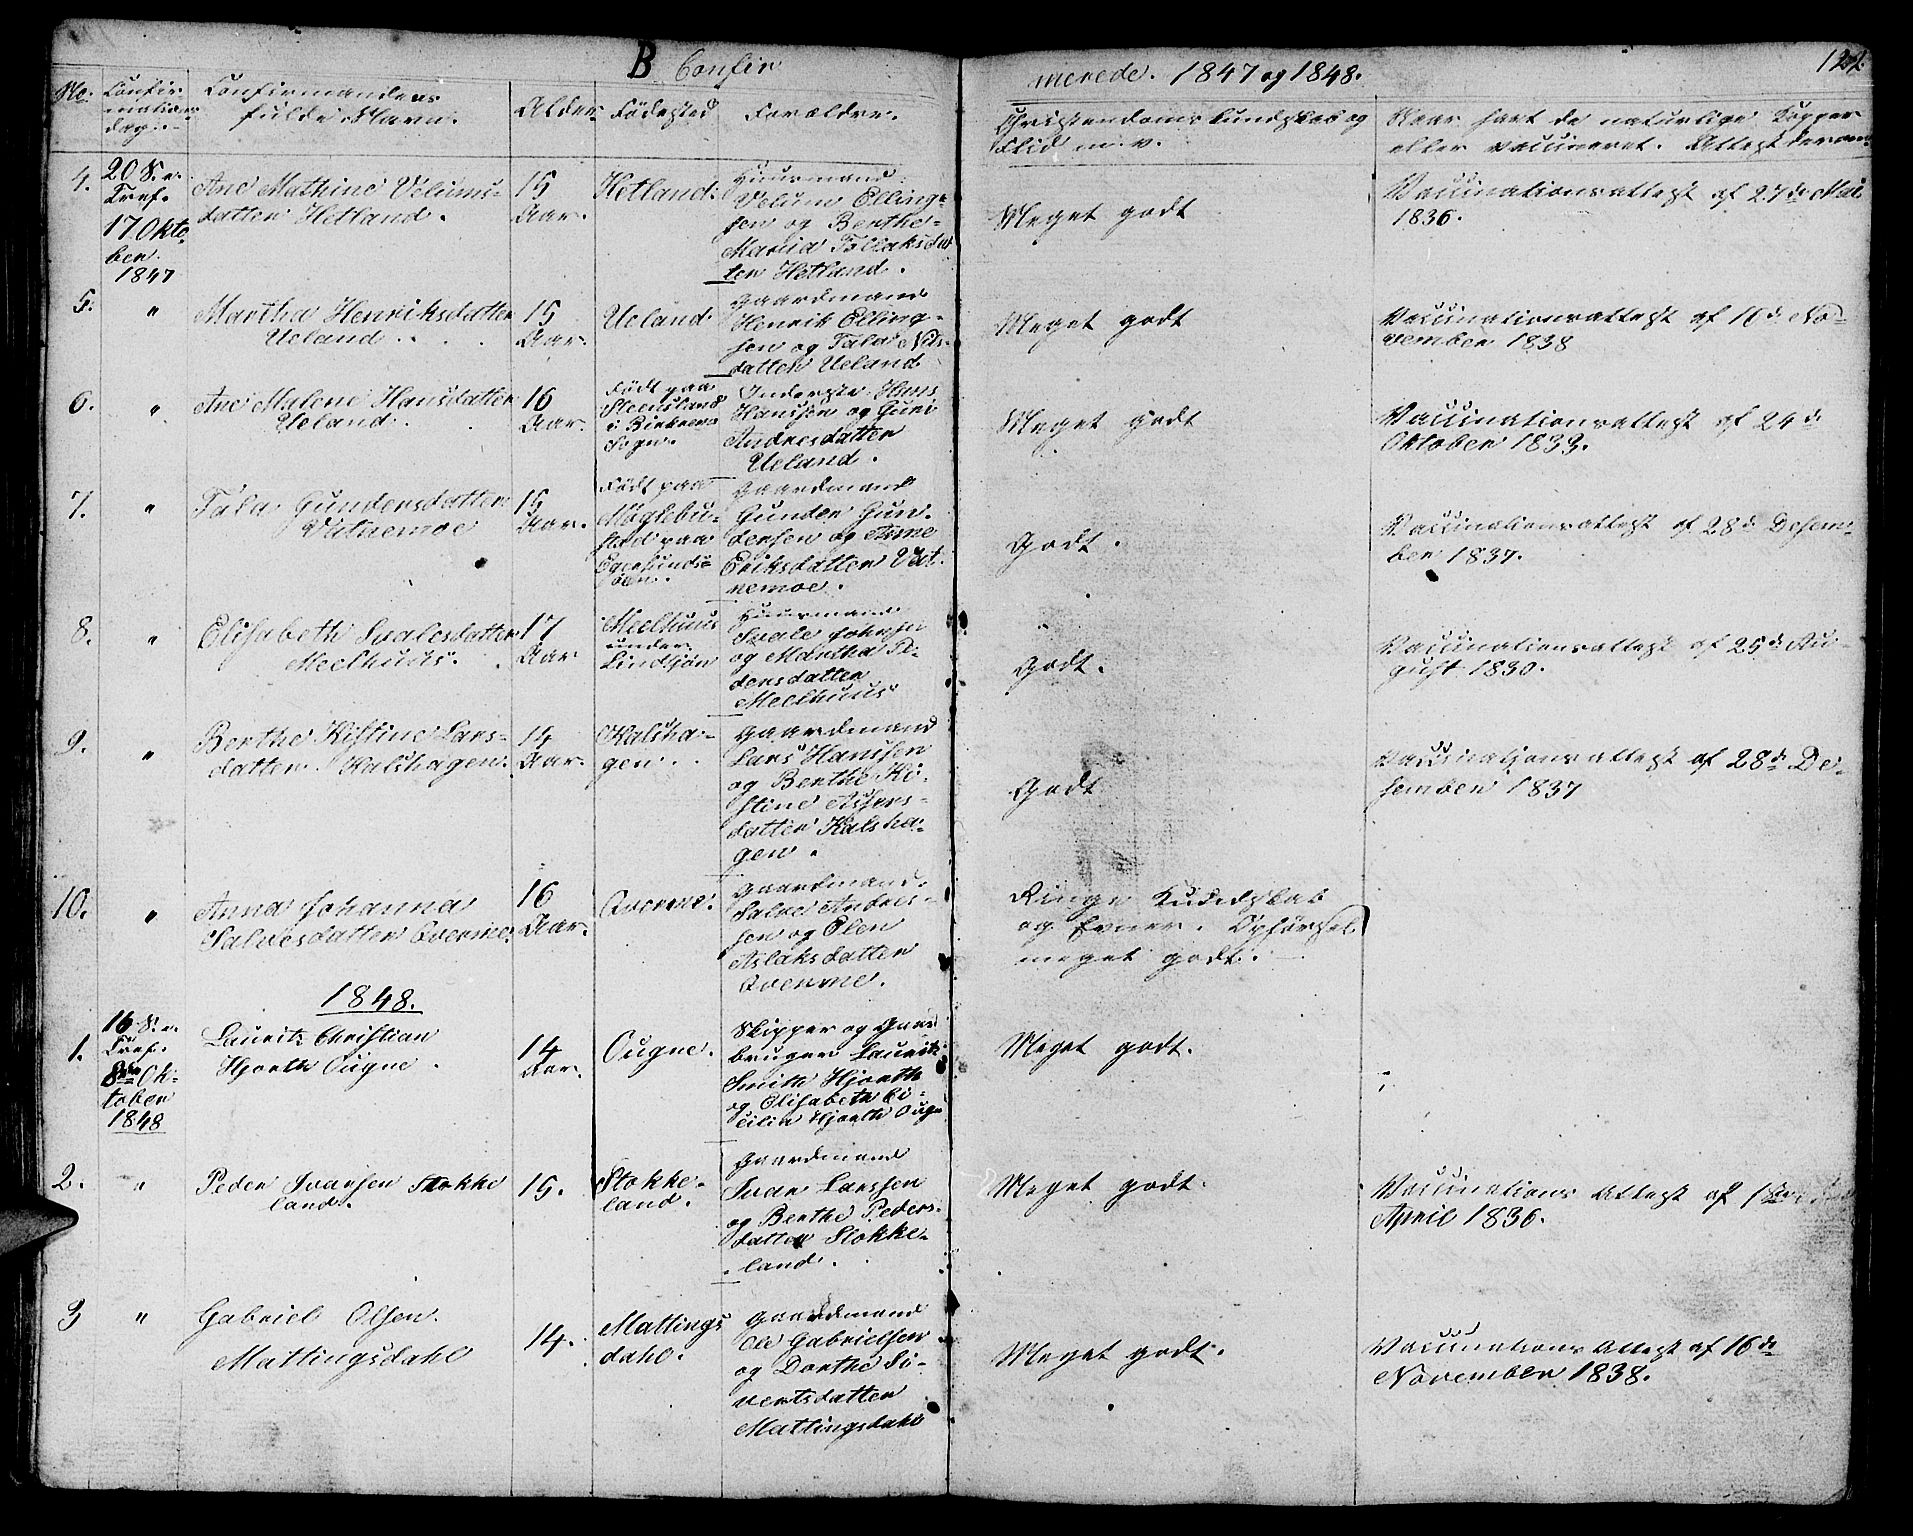 B Confir merede. 1847 og 1848. 122.
No. Confir mations dag. Confirmandens fulde Navn. Alder. Fødested Forældre. Christendoms Kundskab og Flid m. v. Naar havt de naturlige Kopper eller vaccineret. Attest derom.
4.
20 S. e.
Tref.
17 Okto
ber.
1847
Ane Mathine Velums-
datter Hetland.
15
Aar.
Hetland.
Huusmand
Velum Elling-
sen og Berthe
Maria Tollaksdat
ter Hetland.
Meget godt
Vaccinationsattest af 27de Mai
1836.
5.
"
Martha Henriksdatter
Ueland.
15
Aar.
Ueland.
Gaardmand
Henrik Elling-
sen og Tala Nils-
datter Ueland
Meget godt
Vaccinationsattest af 16de No-
vember 1838
6.
"
Ane Malene Hansdatter
Ueland.
16
Aar.
Født paa
Steensland
i Birkrem
Sogn.
Inderste Hans
Hanssen og Guri
Andresdatter
Ueland.
Meget godt
Vaccinationsattest af 24de
Oktober 1833.
7.
"
Tala Gundersdatter
Vatnemoe
15
Aar.
Født paa
Møglebu-
stad paa
Egersunds-
Øen.
Gaardmand
Gunder Gun-
dersen og Anne
Eriksdatter Vat-
nemoe.
Godt.
Vaccinationsattest af 28de Desem-
ber 1837.
8.
"
Elisabeth Svalesdatter
Meelhuus.
17
Aar
Meelhuus
under
Lindsjøn
Huusmand
Svale Johnsen
og Martha Pe-
dersdatter
Meelhuus
Godt.
Vaccinationsattest af 25de Au-
gust 1830.
9.
"
Berthe Kistine Lars-
datter Kalshagen.
14
Aar.
Kalsha-
gen.
Gaardmand
Lars Hanssen
og Berthe Ki-
stine Assers-
datter Kalsha-
gen.
Godt
Vaccinationsattest af 28de De-
sember 1837
10.
"
Anna Johanna
Salvesdatter Qverme.
16
Aar.
Qverme.
Gaardmand
Salve Andres-
sen og Elen
Aslaksdatter
Qverme.
Ringe Kundskab
og Evner. Opførsel
meget godt.
1848.
1.
16 S. e.
Tref.
8de Ok-
tober
1848
Lauritz Christian
Hjorth Ougne.
14
Aar.
Ougne.
Skipper og Gaar
bruger Lauritz
Smith Hjorth
og Elisabeth Ce-
cilia Hjorth Ougn
Meget godt.
2.
"
Peder Ivarsen Stokke
land.
15.
Stokke-
land.
Gaardmand
Ivar Larssen
og Berthe Peders-
datter Stokke-
land.
Meget godt.
Vaccinations Attest af
April 1836.
3
"
Gabriel Olsen
Mattingsdahl
14.
Mattings
dahl.
Gaardmand
Ole Gabrielsen
og Dorthe Si-
vertsdatter
Mattingsdahl
Meget godt.
Vaccinations Attest af 16de
November 1838.